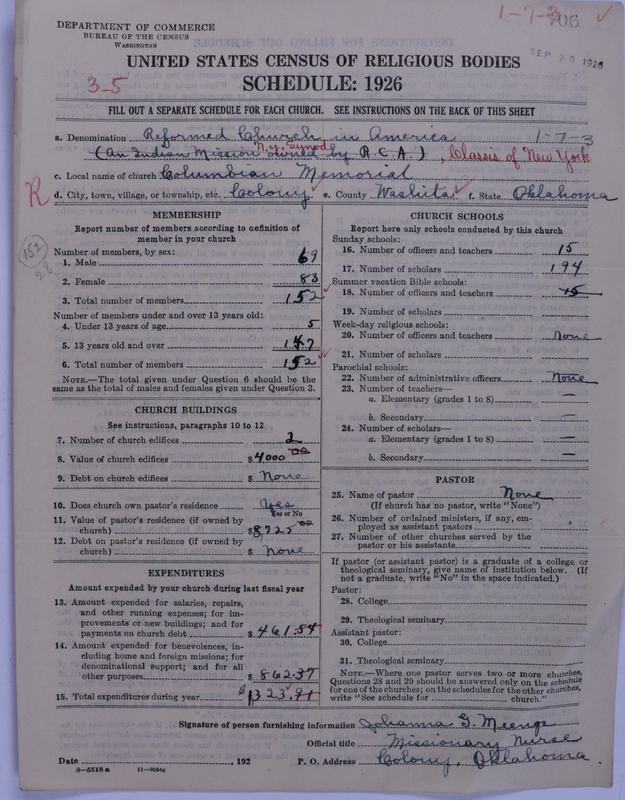 1-7-3 706
DEPARTMENT OF COMMERCE
BUREAU OF THE CENSUS
WASHINGTON
SEP 20 1926
UNITED STATES CENSUS OF RELIGIOUS BODIES
3-5
SCHEDULE: 1926
FILL OUT A SEPARATE SCHEDULE FOR EACH CHURCH. SEE INSTRUCTIONS ON THE BACK OF THIS SHEET
a. Denomination Reformed Church in America 1-7-3
N.Y. Synod
(An Indian Mission owned by R.C.A.), Classis of New York
c. Local name of church Columbian Memorial
R d. City, town, village, or township, etc. Colony e. County Washita f. State Oklahoma
MEMBERSHIP
Report number of members according to definition of
member in your church
152
28
Number of members, by sex:
1. Male 69
2. Female 83
3. Total number of members 152
Number of members under and over 13 years old:
4. Under 13 years of age 5
5. 13 years old and over 147
6. Total number of members 152
NOTE.—The total given under Question 6 should be
same as the total of males and females given under Question 3.
CHURCH BUILDINGS
See instructions, paragraphs 10 to 12
7. Number of church edifices 2
8. Value of church edifices $4,000 00
9. Debt on church edifices $ None
10. Does church own pastor's residence Yes
Yes or No
11. Value of pastor's residence (if owned by
church) $8,725 00
12. Debt on pastor's residence (if owned by
church) $ None
EXPENDITURES
Amount expended by your church during last fiscal year
13. Amount expended for salaries, repairs,
and other running expenses; for im-
provements or new buildings; and for
payments on church debt $ 461.54
14. Amount expended for benevolences, in-
cluding home and foreign missions; for
denominational support; and for all
other purposes $ 862.37
15. Total expenditures during year $1323.91
CHURCH SCHOOLS
Report here only schools conducted by this church
Sunday schools:
16. Number of officers and teachers 15
17. Number of scholars 194
Summer vacation Bible schools:
18. Number of officers and teachers 15
19. Number of scholars
Week-day religious schools:
20. Number of officers and teachers None
21. Number of scholars
Parochial schools:
22. Number of administrative officers None
23. Number of teachers—
a. Elementary (grades 1 to 8) —
b. Secondary —
24. Number of scholars—
a. Elementary (grades 1 to 8) —
b. Secondary —
PASTOR
25. Name of pastor None
(If church has no pastor, write "None")
26. Number of ordained ministers, if any, em-
ployed as assistant pastors
27. Number of other churches served by the
pastor or his assistants
If pastor (or assistant pastor) is a graduate of a college or
theological seminary, give name of institution below. (If
not a graduate, write "No" in the space indicated.)
Pastor:
28. College
29. Theological seminary
Assistant pastor:
30. College
31. Theological seminary
NOTE.—Where one pastor serves two or more churches,
Questions 28 and 29 should be answered only on the schedule
for one of the churches; on the schedules for the other churches,
write "See schedule for church."
Signature of person furnishing information Johanna G. Meengs
Official title Missionary Nurse
Date , 192 P. O. Address Colony, Oklahoma.
8-5518a 11-9664c